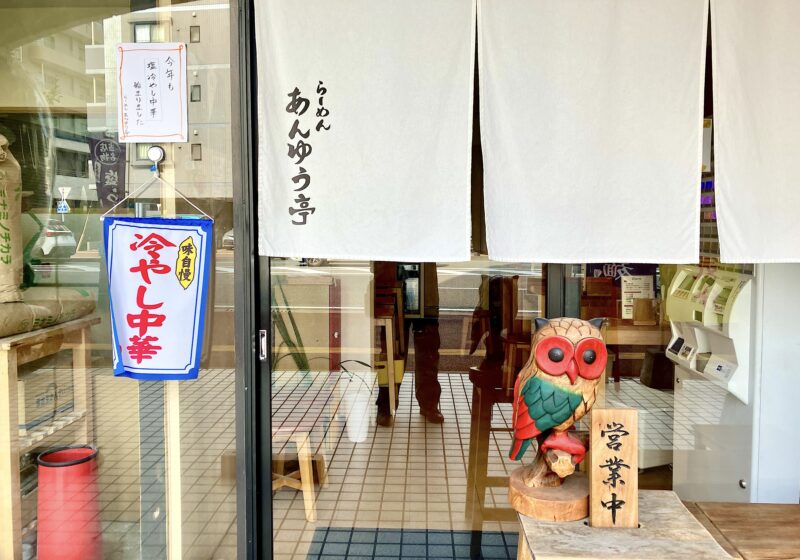 今年も
塩冷やし中華
始まりました
味自慢
冷やし中華
らーめん
あんゆう亭
営業中